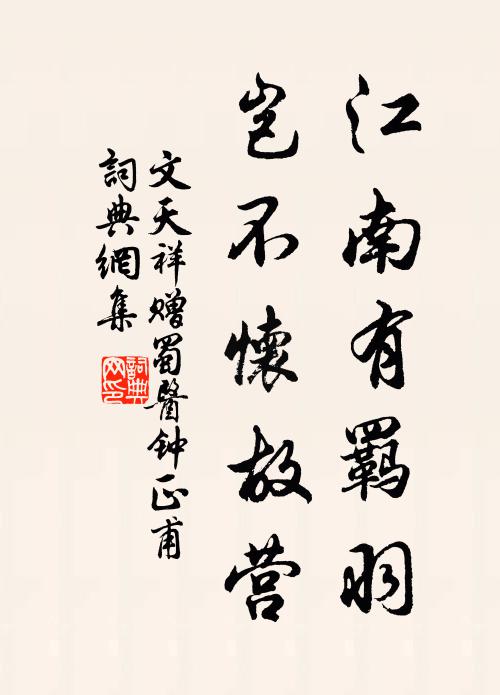 江南有羈羽
豈不懷故营
文天祥赠蜀醫钟正甫
詞典網集
詞典
网印